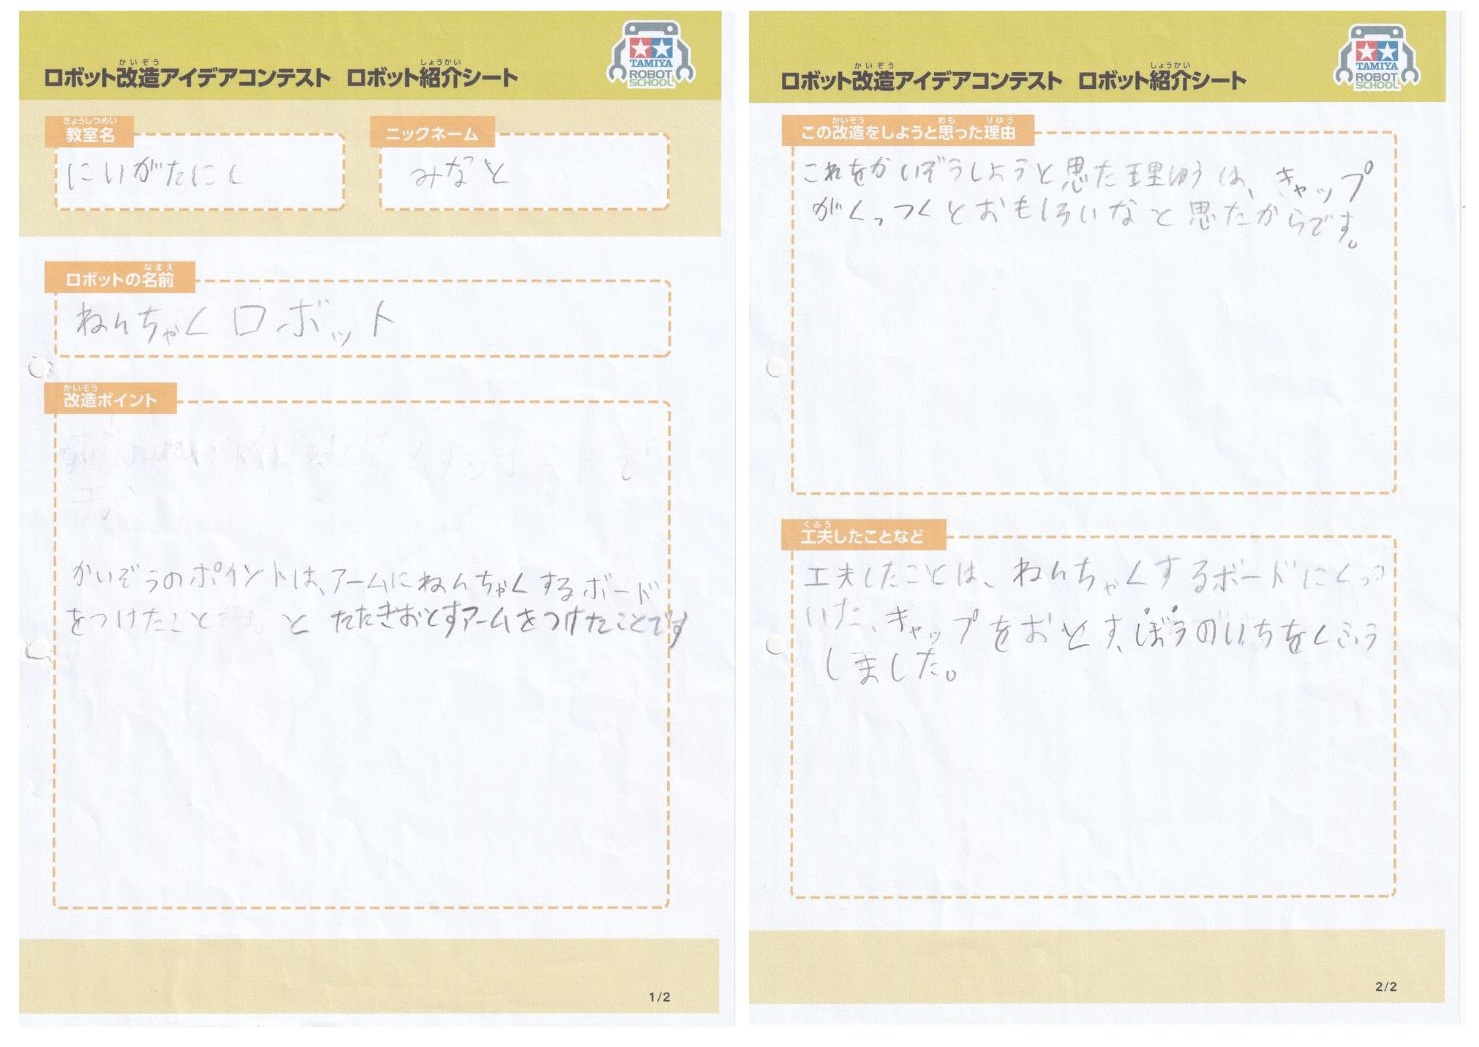 ロボット改造アイデアコンテスト ロボット紹介シート
かいぞう しょうかい
TAMIYA
ROBOT
SCHOOL
きょうしつめい
教室名
にいがたにし
ニックネーム
みなと
なまえ
ロボットの名前
ねんちゃくロボット
かいぞう
改造ポイント
かいぞうのポイントは、アームにねんちゃくするボード
をつけたこととたたきおとすアームをつけたことです
1/2
ロボット改造アイデアコンテスト ロボット紹介シート
かいぞう しょうかい
TAMIYA
ROBOT
SCHOOL
かいぞう おも りゆう
この改造をしようと思った理由
これをかいぞうしようと思た理ゆうは、キャップ
がくっつくとおもしろいなと思たからです。
くふう
工夫したことなど
工夫したことは、ねんちゃくするボードにくっつ
いた、キャップをおとす、ぼうのいちをくふう
しました。
2/2